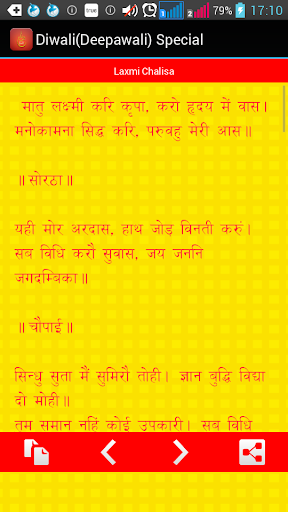 true
79%
17:10
Diwali(Deepawali) Special
Laxmi Chalisa
मातु लक्ष्मी करि कृपा, करो हृदय में वास।
मनोकामना सिद्ध करि, परुवहु मेरी आस॥
॥ सोरठा॥
यही मोर अरदास, हाथ जोड़ विनती करुं।
सब विधि करौ सुवास, जय जननि
जगदम्बिका॥
॥ चौपाई॥
सिन्धु सुता मैं सुमिरौ तोही। ज्ञान बुद्धि विद्या
दो मोही॥
तुम समान नहिं कोई उपकारी। सब विधि